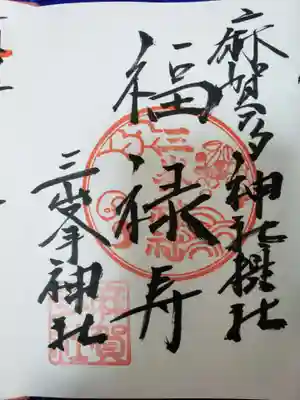 麻賀多神社摂社
福禄寿
三峯神社